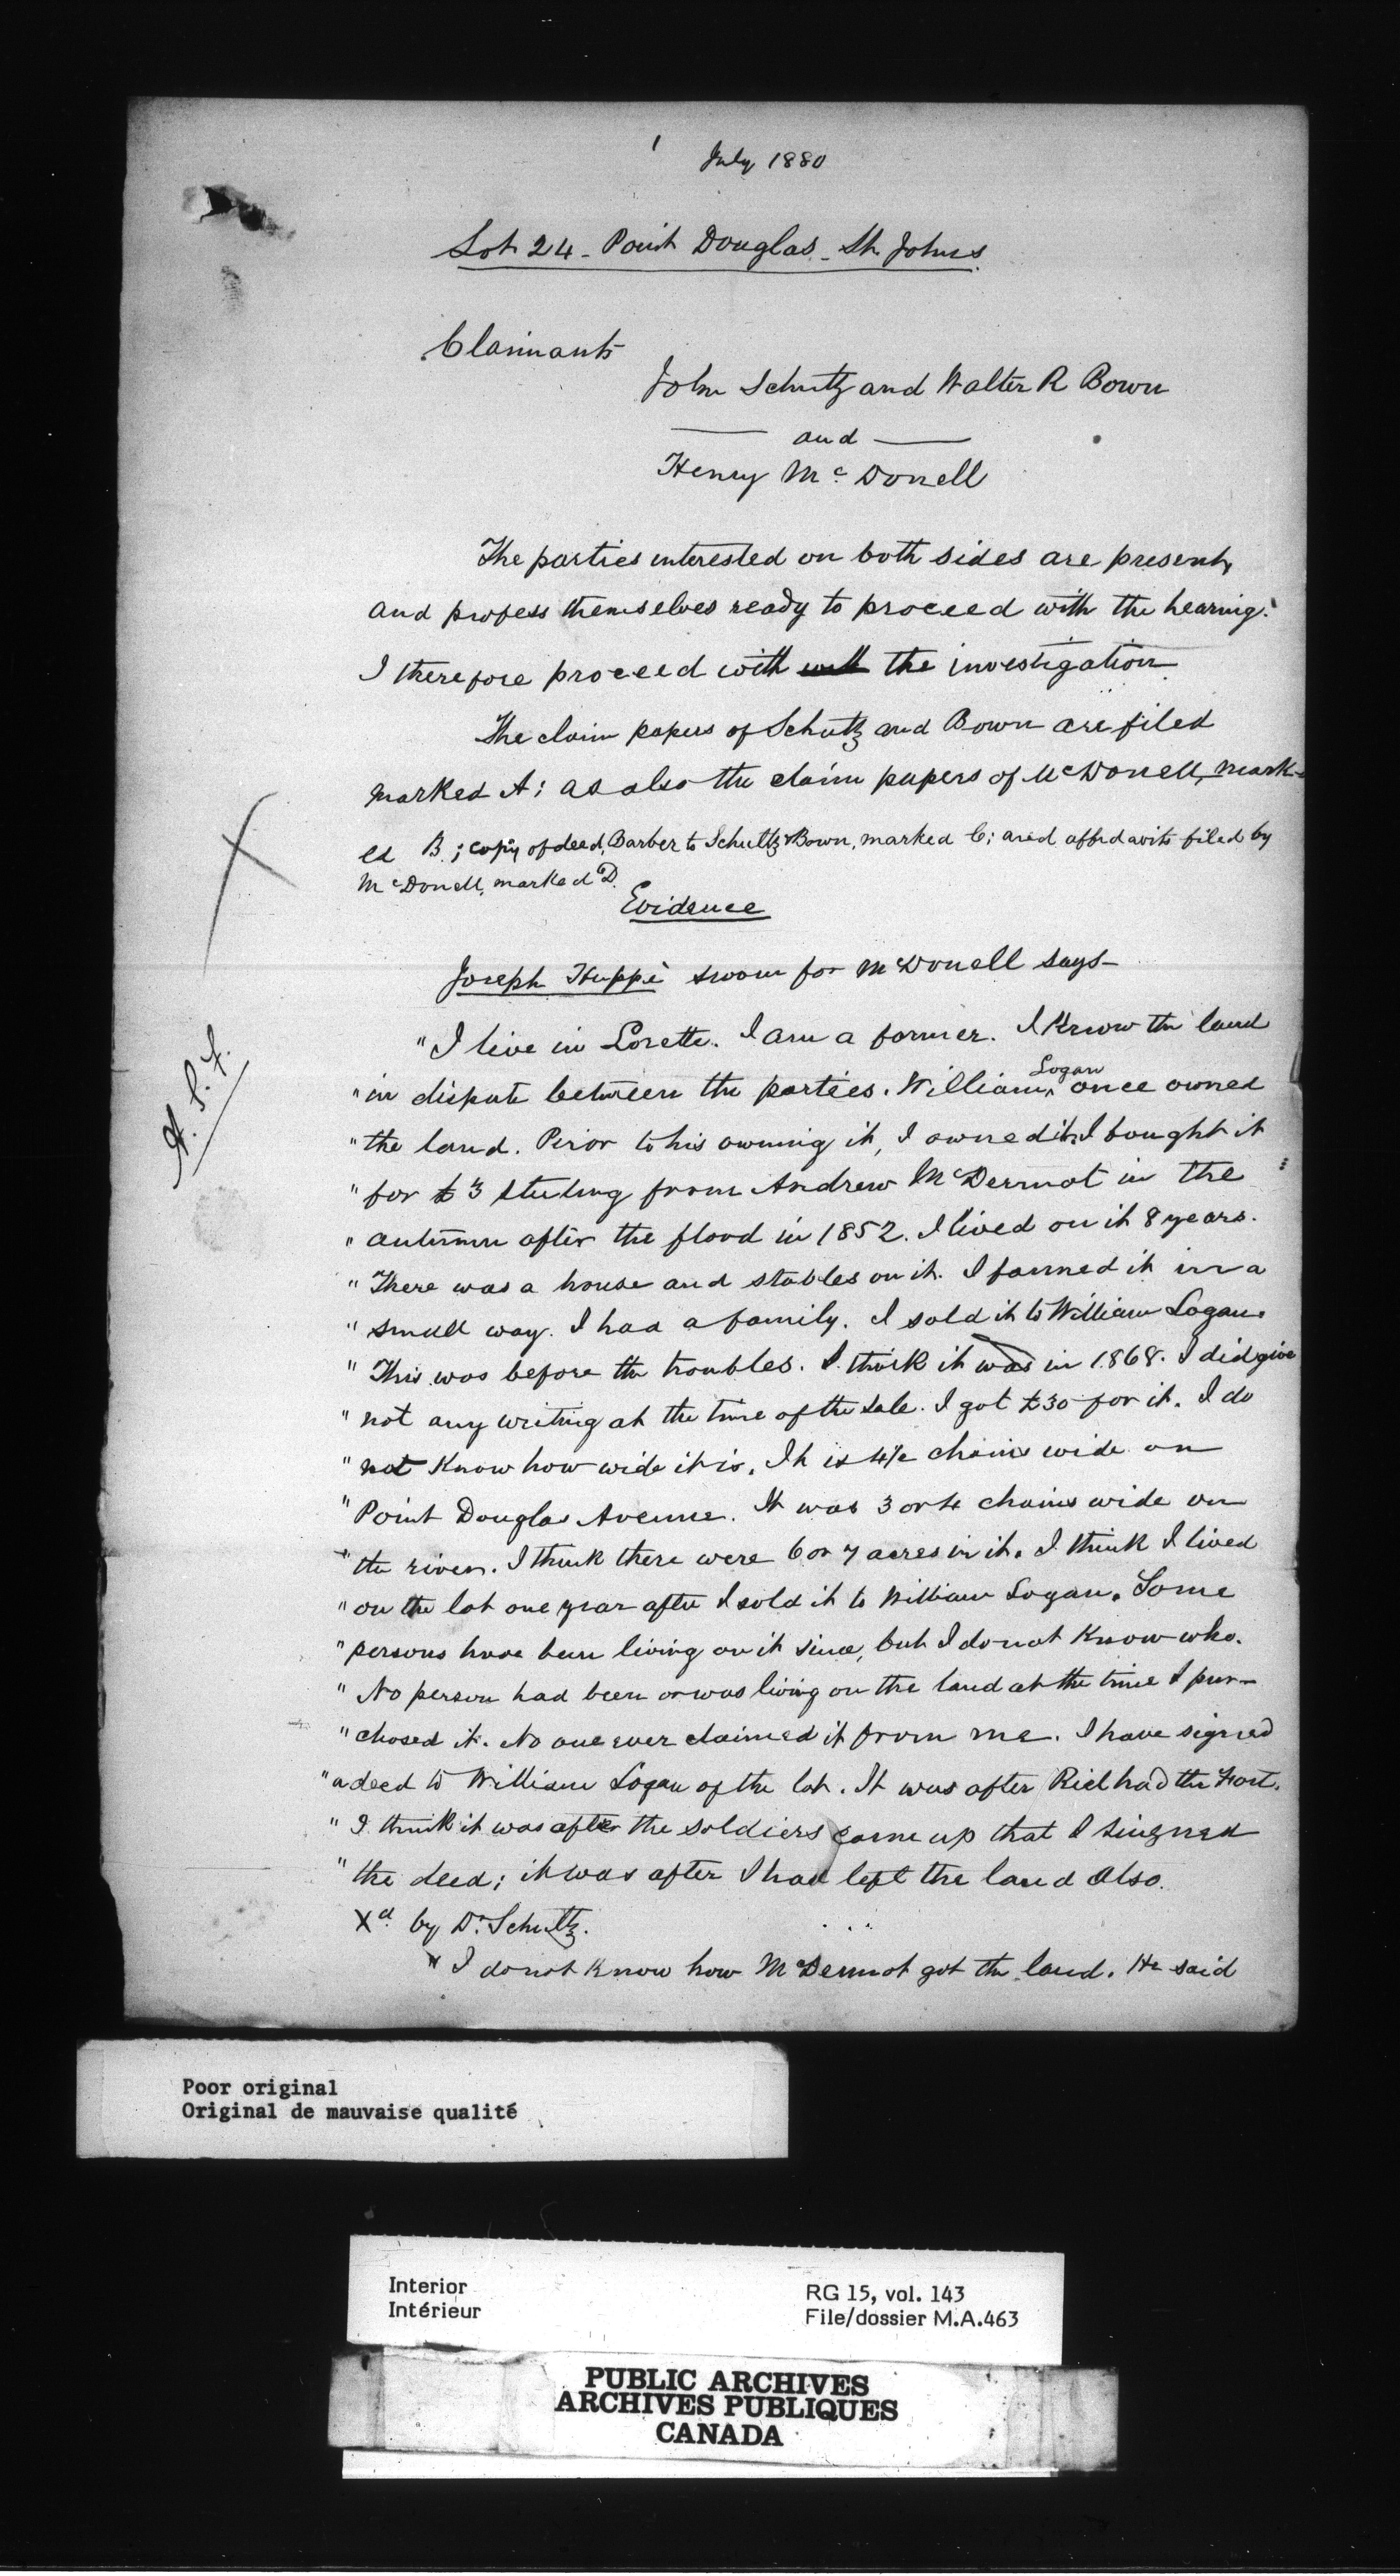 1 July 1880
Lot 24 - Point Douglas - St. Johns
Claimants
John Schutz and Walter R Bown
and
Henry McDonell
The parties interested on both sides are present,
and profess themselves ready to proceed with the hearing.
I therefore proceed with the investigation
The claim papers of Schutz and Bown are filed
marked A; as also the claim papers of McDonell, mark-
ed B; copy of deed, Barber to Schultz & Bown, marked C; and affidavits filed by
McDonell, marked D.
Evidence
Joseph Huppé sworn for McDonell says-
"I live in Lorette. I am a farmer. I know the land
"in dispute between the parties. William Logan once owned
"the land. Perior to his owning it, I owned it. I bought it
"for £3 sterling from Andrew McDermot in the
"autumn after the flood in 1852. I lived on it 8 years.
"There was a house and stables on it. I farmed it in a
"small way. I had a family. I sold it to William Logan.
"This was before the troubles. I think it was in 1868. I did give
"not any writing at the time of the sale. I got £30 for it. I do
"not know how wide it is. It is 4½ chains wide on
"Point Douglas Avenue. It was 3 or 4 chains wide on
"the river. I think there were 6 or 7 acres in it. I think I lived
"on the lot one year after I sold it to William Logan. Some
"persons have been living on it since, but I do not know who.
"No person had been or was living on the land at the time I pur-
"chased it. No one ever claimed it from me. I have signed
"a deed to William Logan of the lot. It was after Riel had the Fort.
"I think it was after the soldiers came up that I singned
"the deed; it was after I had left the land also.
Xd. by Dr. Schultz.
"I do not know how McDermot got the land. He said
A. S. F.
Poor original
Original de mauvaise qualité
Interior
Intérieur
RG 15, vol. 143
File/dossier M.A.463
PUBLIC ARCHIVES
ARCHIVES PUBLIQUES
CANADA